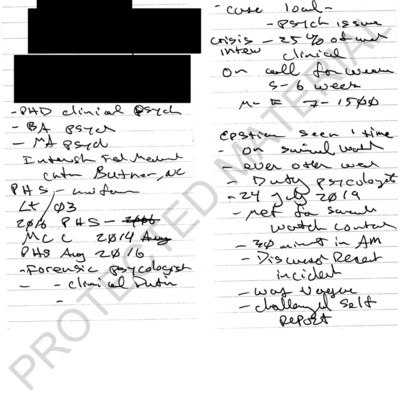 - PHD clinical psych
- BA psych
- MA psych
Internsh Fed Med
Cntr Butner, NC
PHS - uniform
Lt 03
2016 PHS - 2006
MCC 2014 Aug
PHS Aug 2016
- Forensic psycologist
- - clinical Dutie
-
- case load -
- psych issue
crisis - 25% of
inter clinical
on call for
5-6 week
M-F 7-1500
epstien seen 1 time
- on
- every other
- Duty psycologist
- 24 July 2019
- met for
watch contact
- 30 minut in AM
- Discused Recent
incident
- was Vague
- challenged self
Report
PROTECTED MATERIAL